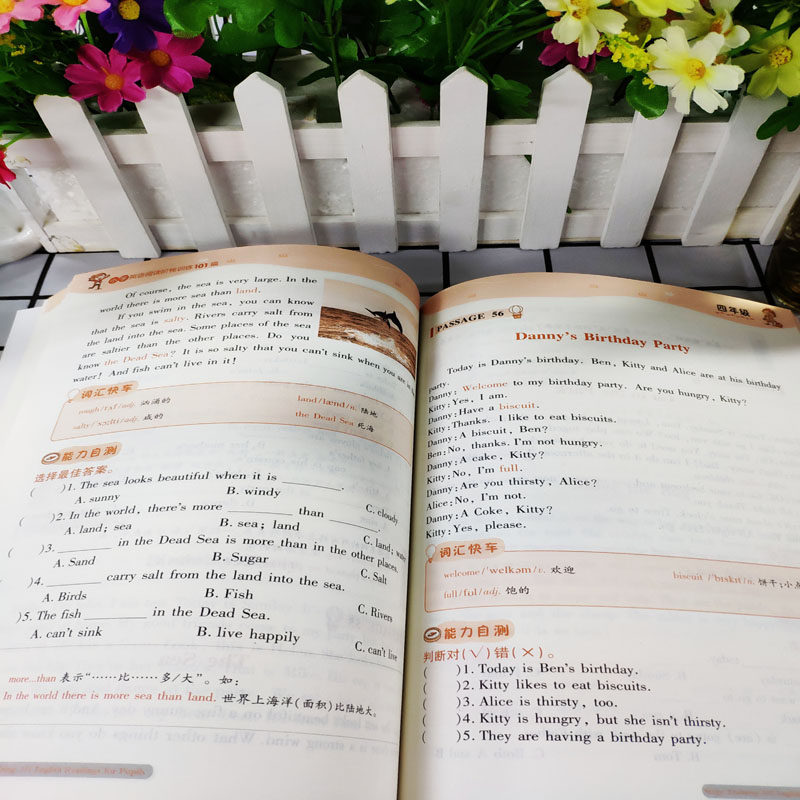 小学英语阅读阶梯训练101篇
Of course, the sea is very large. In the
world there is more sea than land.
If you swim in the sea, you can know
that the sea is salty. Rivers carry salt from
the land into the sea. Some places of the sea
are saltier than the other places. Do you
know the Dead Sea? It is so salty that you can't sink when you are in the
water! And fish can't live in it!
词汇快车
rough/rʌf/adj. 汹涌的
land/lænd/n. 陆地
salty/'sɔ:lti/adj. 咸的
the Dead Sea 死海
能力自测
选择最佳答案。
( )1. The sea looks beautiful when it is ________.
A. sunny B. windy C. cloudy
( )2. In the world, there's more ________ than ________.
A. land; sea B. sea; land C. land; water
( )3. ________ in the Dead Sea is more than in the other places.
A. Sand B. Sugar C. Salt
( )4. ________ carry salt from the land into the sea.
A. Birds B. Fish C. Rivers
( )5. The fish ________ in the Dead Sea.
A. can't sink B. live happily C. can't live
more...than 表示“……比……多/大”。如:
In the world there is more sea than land. 世界上海洋(面积)比陆地大。
English Readings for Pupils
四年级
PASSAGE 56
Danny's Birthday Party
Today is Danny's birthday. Ben, Kitty and Alice are at his birthday
party.
Danny: Welcome to my birthday party. Are you hungry, Kitty?
Kitty: Yes, I am.
Danny: Have a biscuit.
Kitty: Thanks. I like to eat biscuits.
Danny: A biscuit, Ben?
Ben: No, thanks. I'm not hungry.
Danny: A cake, Kitty?
Kitty: No, I'm full.
Danny: Are you thirsty, Alice?
Alice: No, I'm not.
Danny: A Coke, Kitty?
Kitty: Yes, please.
词汇快车
welcome/'welkəm/v. 欢迎
biscuit/'bɪskɪt/n. 饼干;小点
full/fʊl/adj. 饱的
能力自测
判断对(√)错(×)。
( )1. Today is Ben's birthday.
( )2. Kitty likes to eat biscuits.
( )3. Alice is thirsty, too.
( )4. Kitty is hungry, but she isn't thirsty.
( )5. They are having a birthday party.